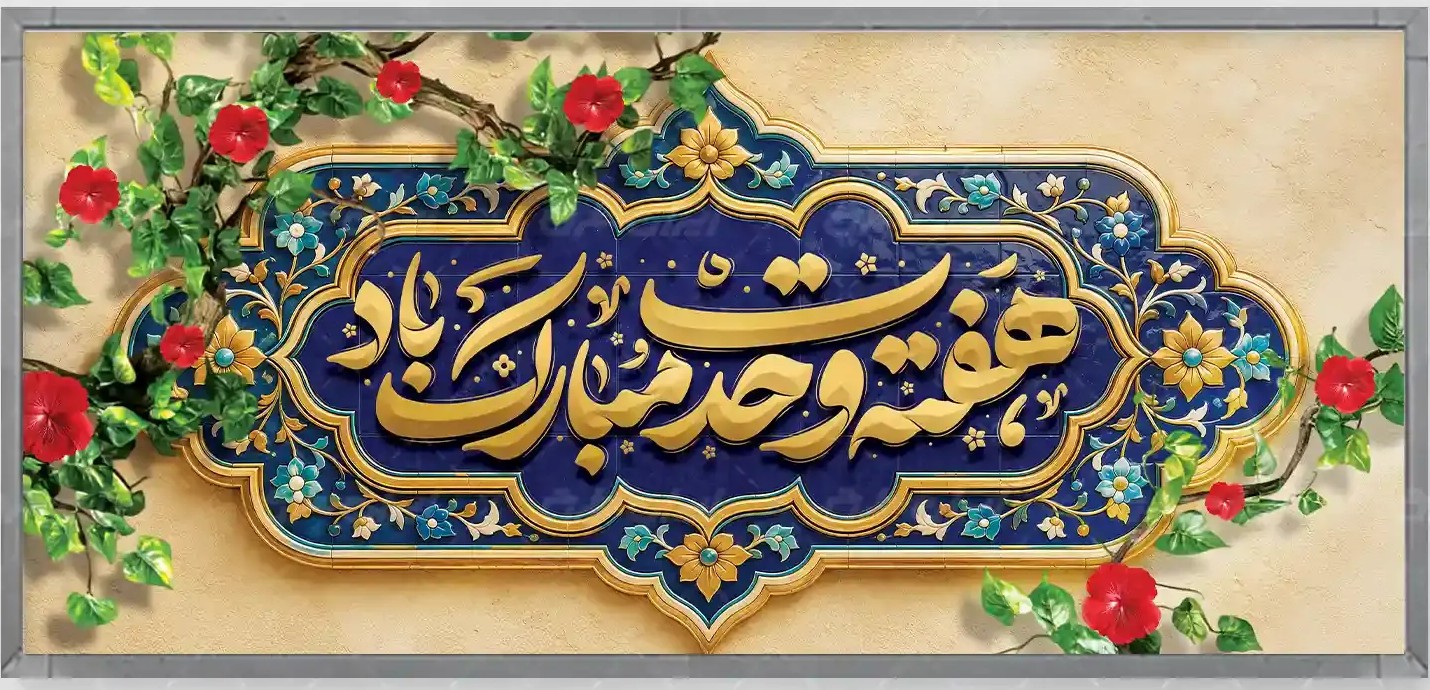 هفته وحدت مبارک باد